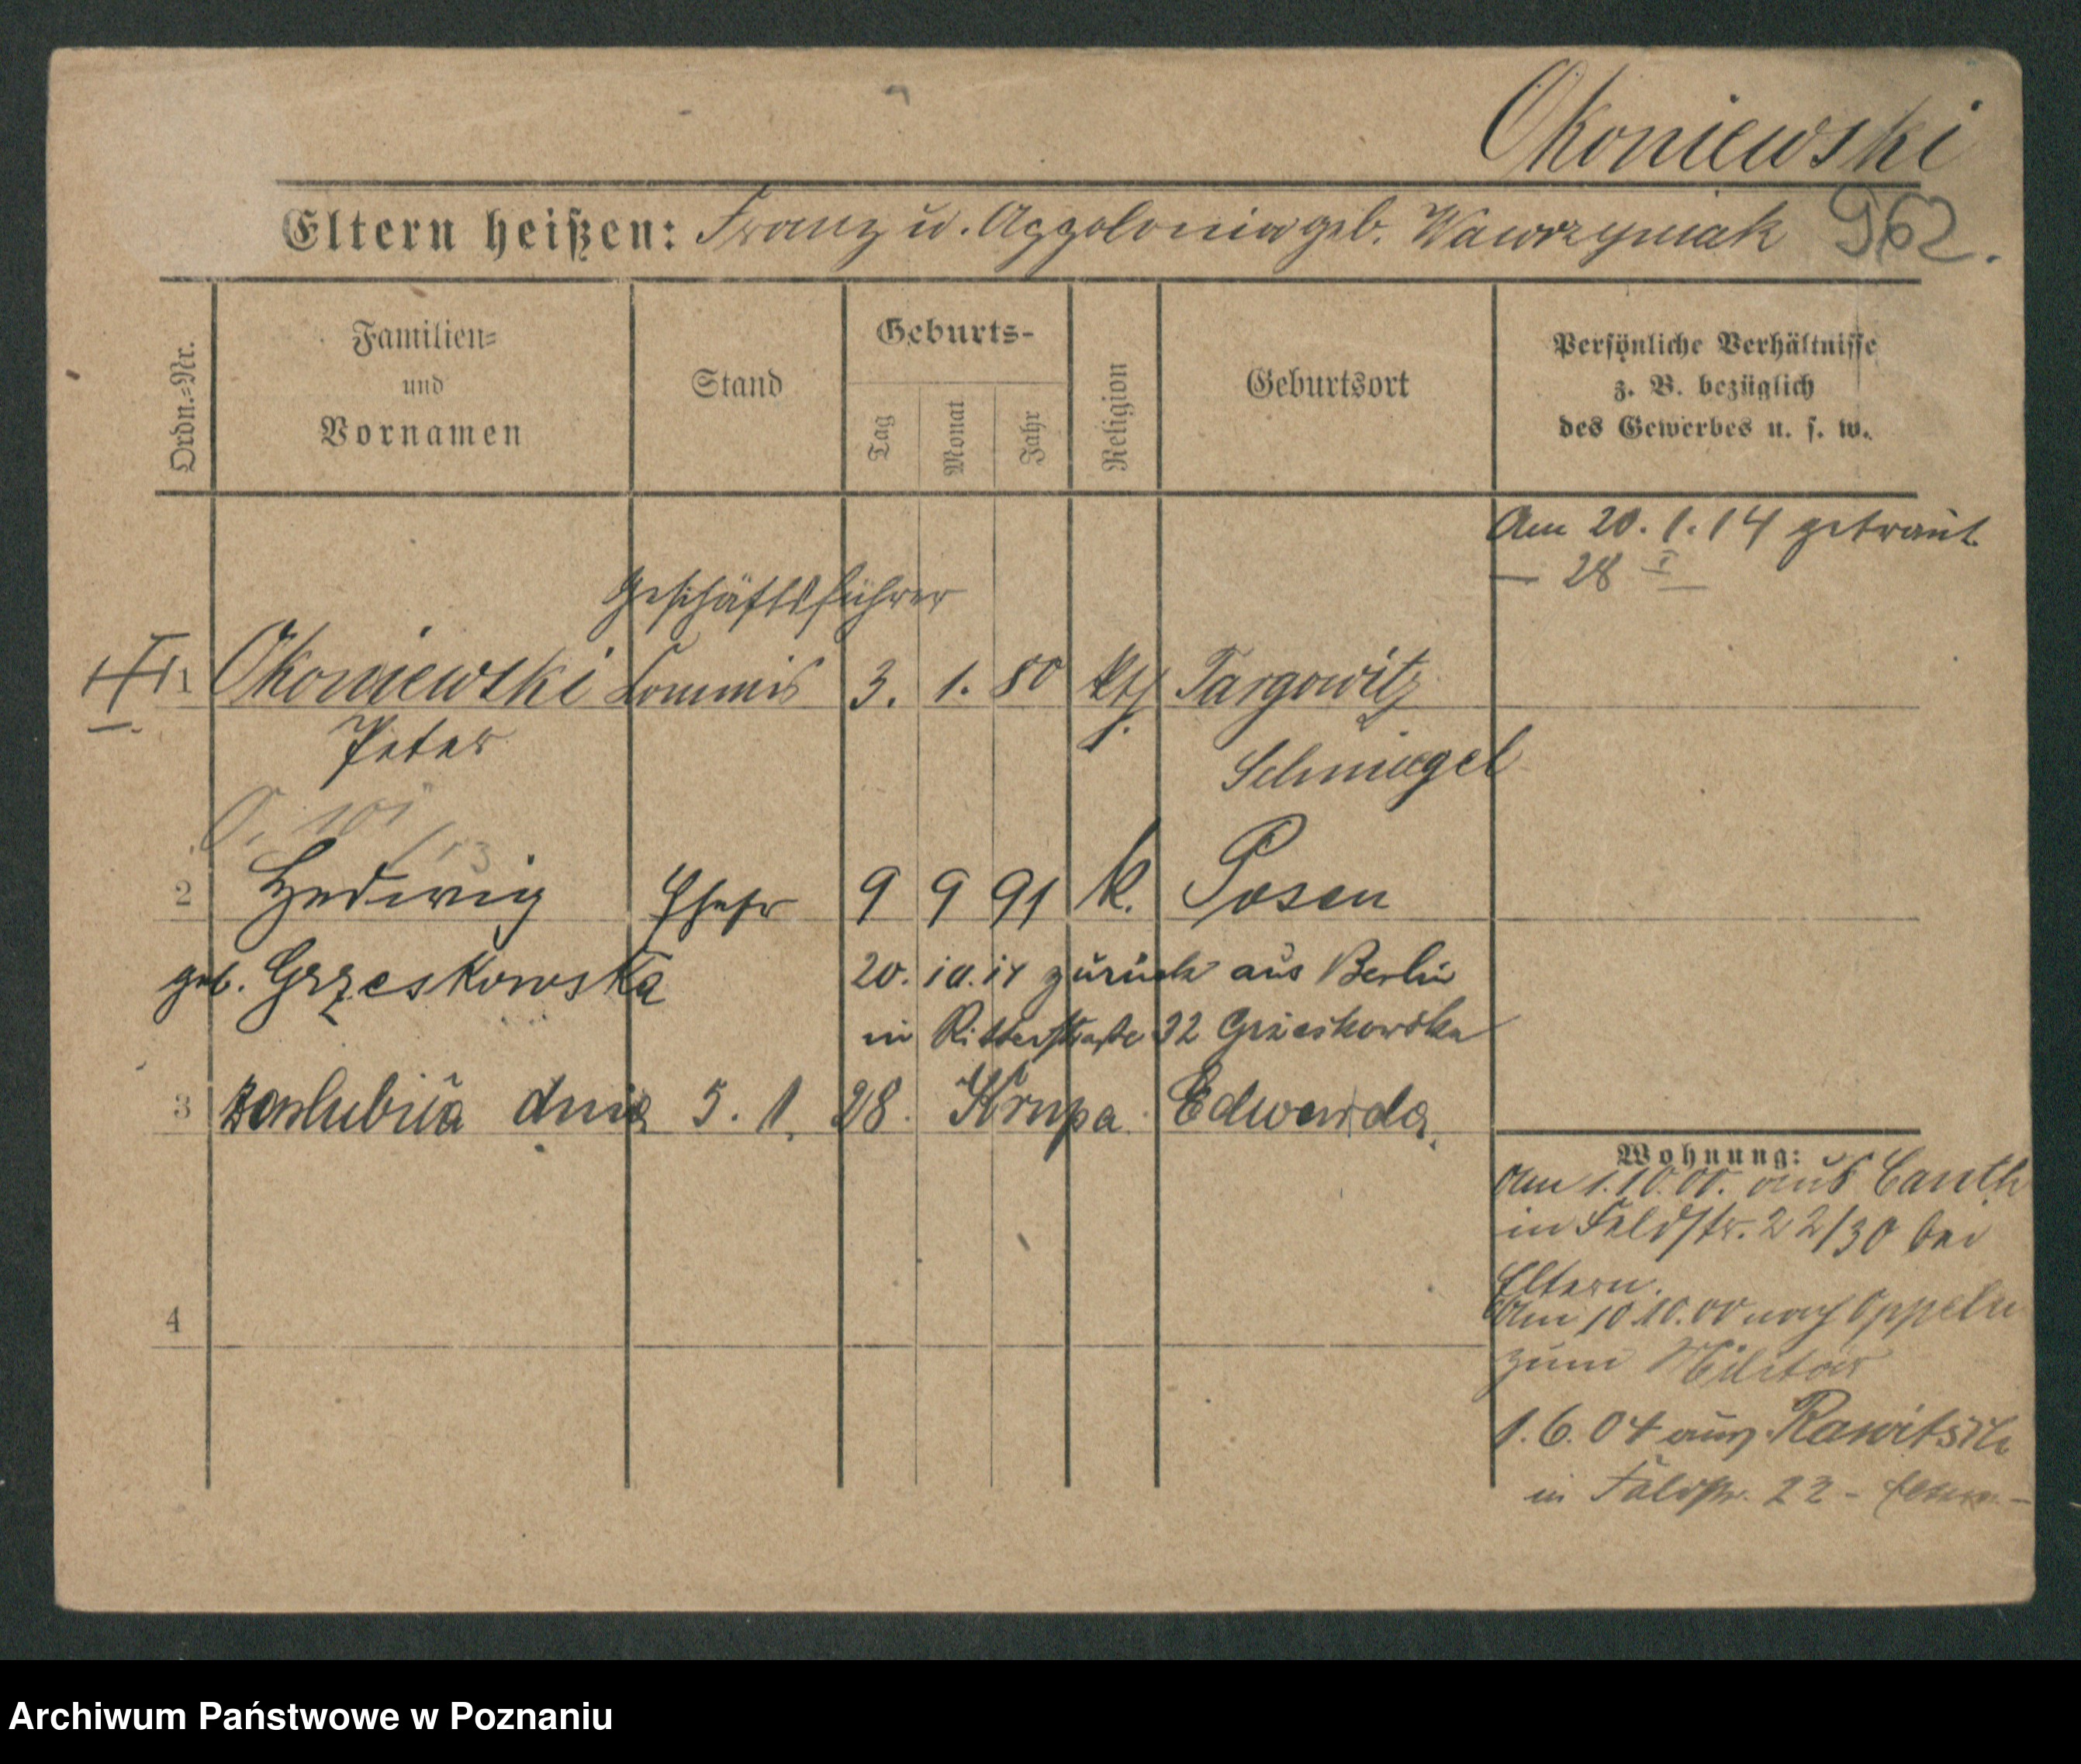 Okoniewski
Eltern heißen: Franz u. Appolonia geb. Wawrzyniak 962.
Ordn.=Nr.
Familien=
und
Vornamen
Stand
Geburts-
Tag
Monat
Jahr
Religion
Geburtsort
Persönliche Verhältnisse
z. B. bezüglich
des Gewerbes u. s. w.
Am 20. 1. 14 getraut
— 28 I —
Geschäftsführer
1 Okoniewski Commis 3. 1. 80 kth Targowitz
Peter
Schmiegel
2 Hedwig Ehefr 9 9 91 k. Posen
geb. Grzeskowska
20. 10. 14 zurück aus Berlin
in Ritterstraße 32 Grzeskowska
3 zaslubiła dnia 5. 1. 28. Krupa Edwarda.
4
Wohnung:
Am 1.10.00. aus Canth
in Feldstr. 22/30 bei
Eltern.
Am 10.10.00 nach Oppeln
zum Militär
1. 6. 04 aus Rawitsch
in Feldstr. 22 -
Archiwum Państwowe w Poznaniu